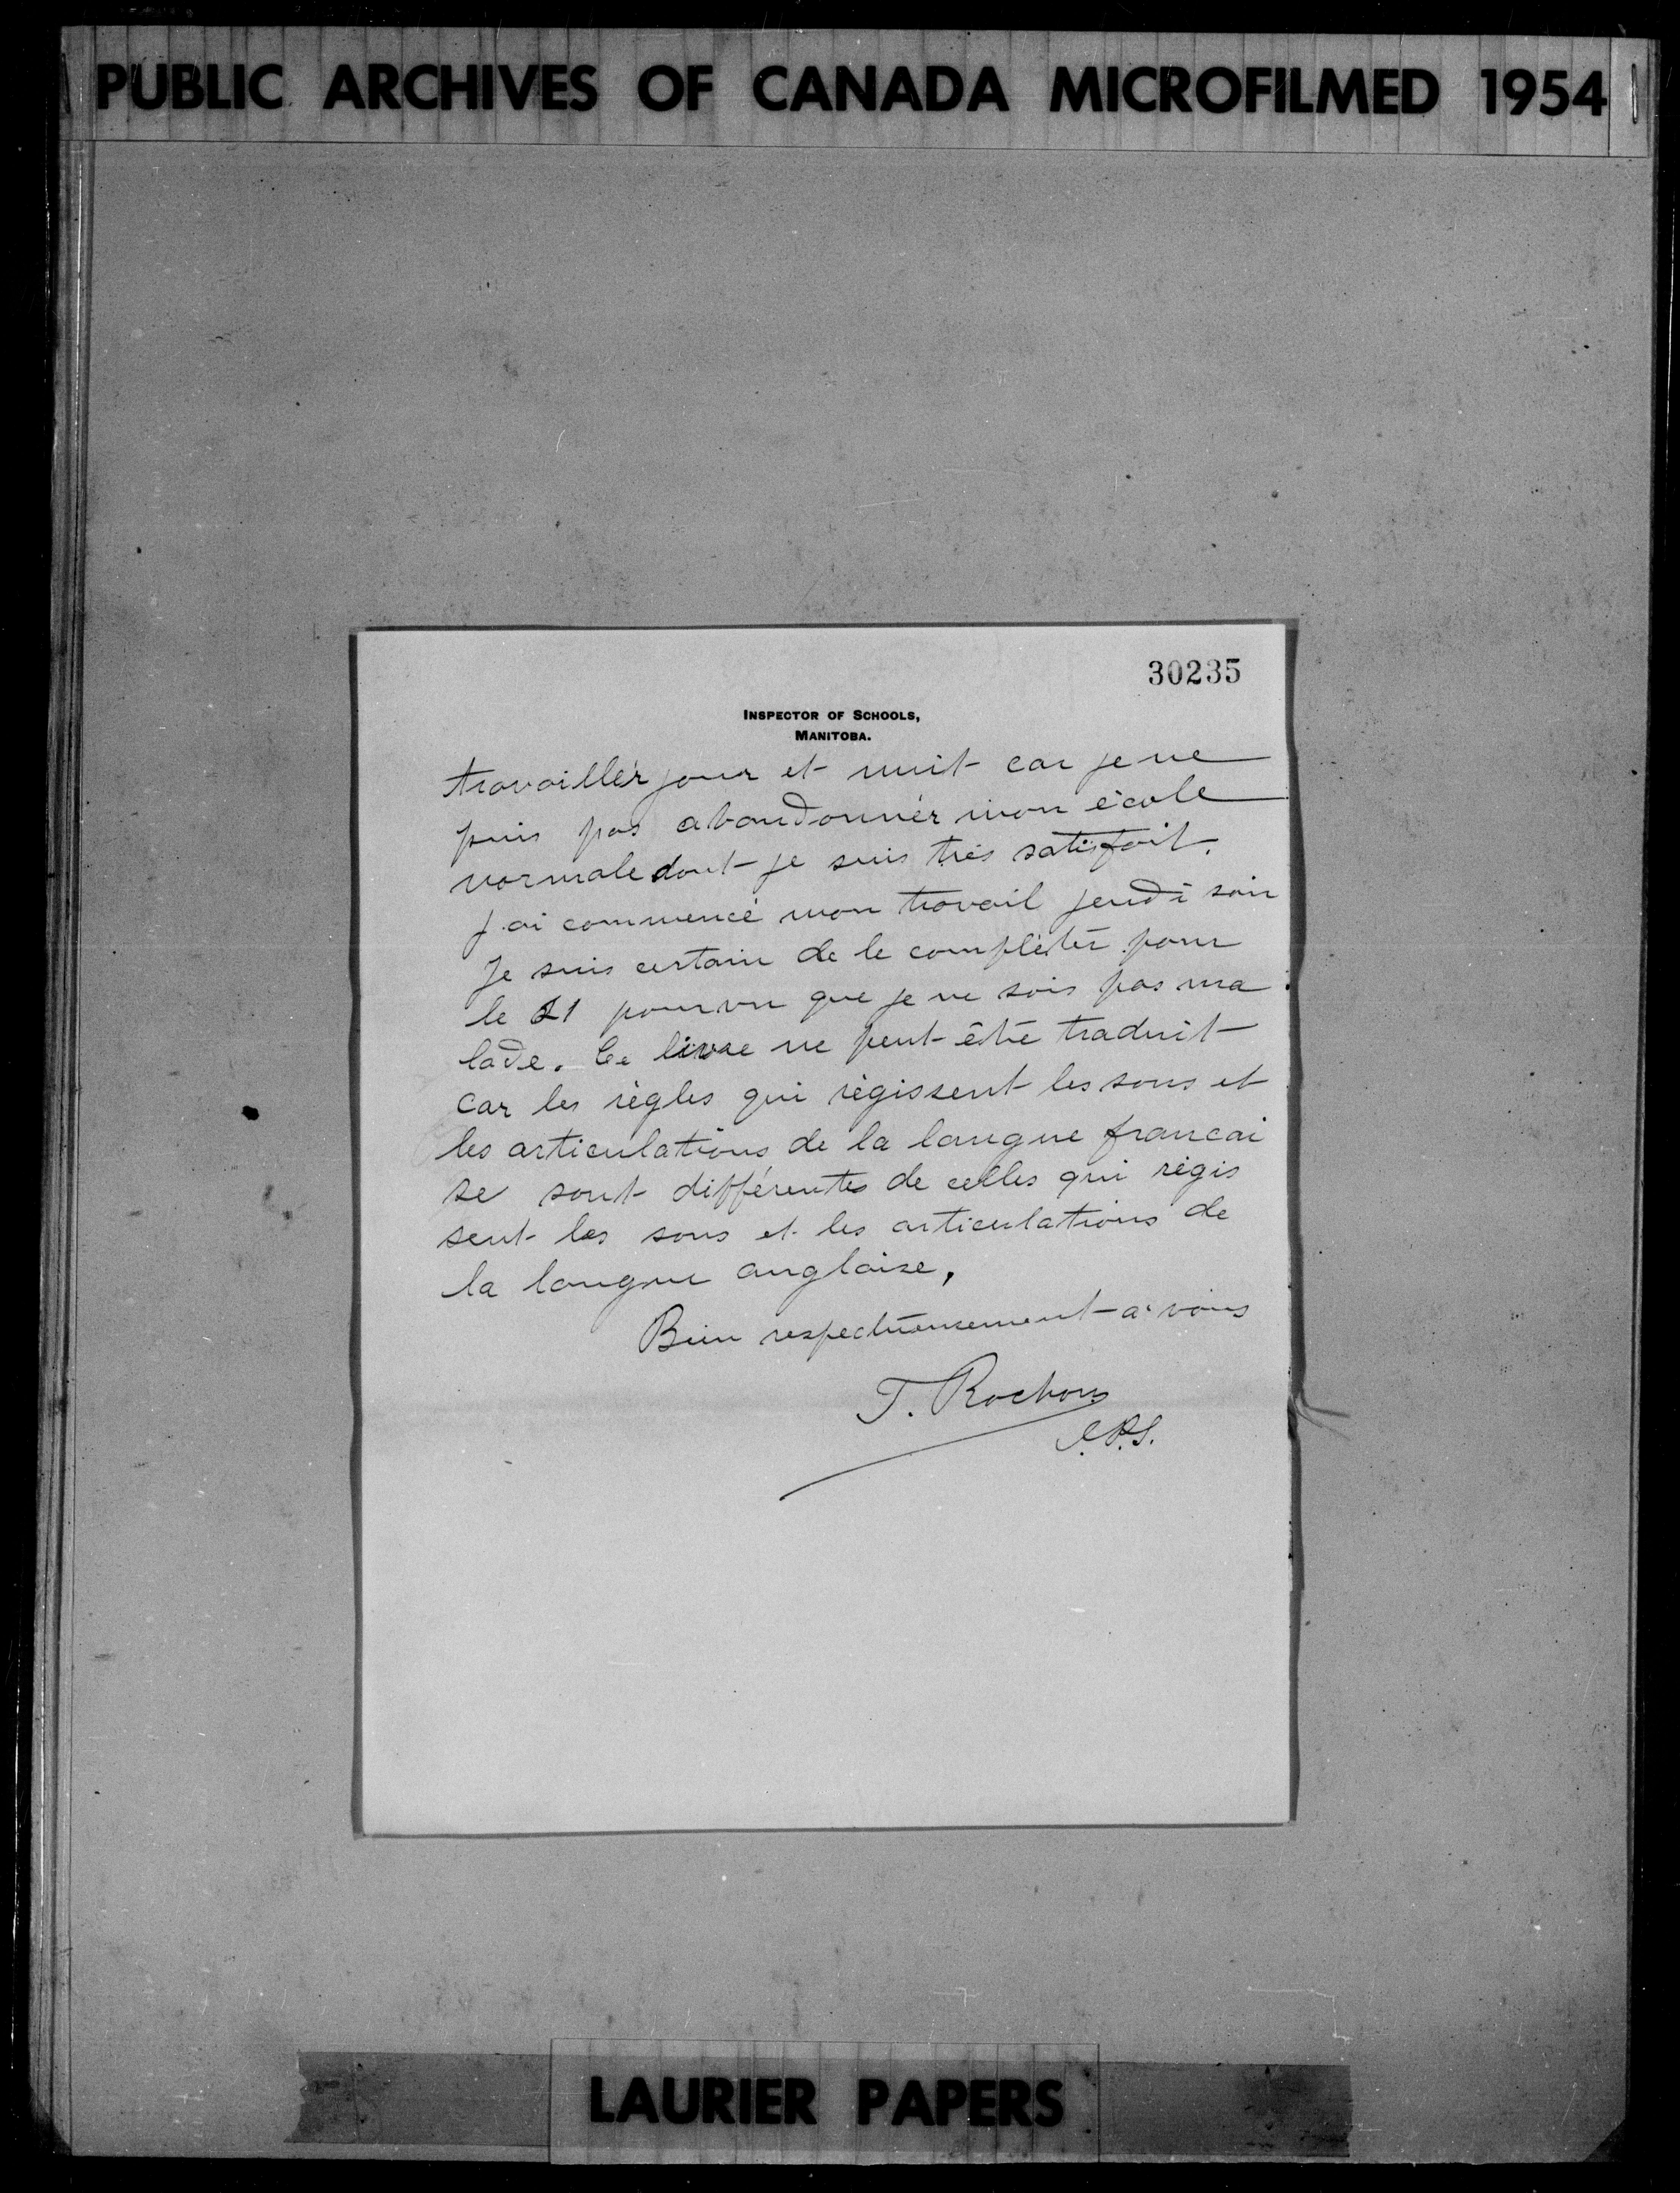 PUBLIC ARCHIVES OF CANADA MICROFILMED 1954
30235
INSPECTOR OF SCHOOLS,
MANITOBA.
travailler jour et nuit car je ne
puis pas abandonner mon école
normale dont je suis très satisfait.
J'ai commencé mon travail jeudi soir
Je suis certain de le compléter pour
le 21 pourvu que je ne sois pas ma
lade. Ce livre ne peut être traduit
car les règles qui régissent les sons et
les articulations de la langue francai
se sont différentes de celles qui régis
sent les sons et les articulations de
la langue anglaise,
Bien respectueusement à vous
T. Rochon
I.P.S.
LAURIER PAPERS